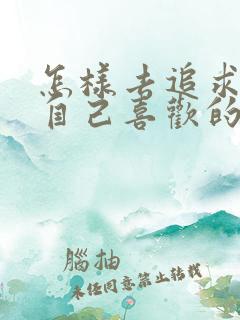 怎樣去追求
自己喜歡的
腦抽
未经同意禁止转载